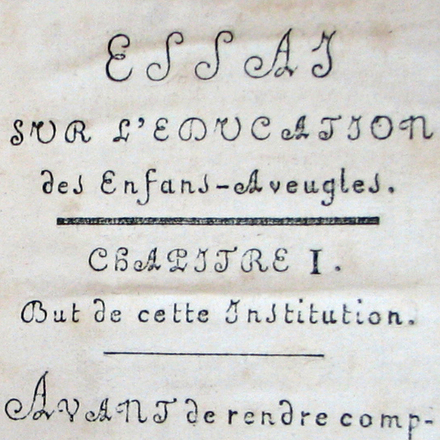 ESSAI
SUR L'EDUCATION
des Enfans-Aveugles.
CHAPITRE I.
But de cette Institution.
AVANT de rendre comp-